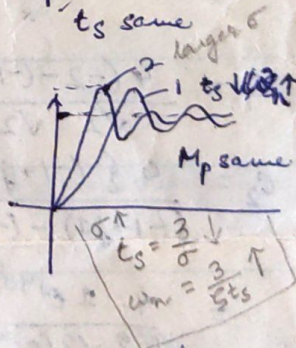 ts same
larger σ
2
1 ts ↓ ωn ↑
Mp same
σ ↑
ts = 3/σ ↓
ωn = 3/ζts ↑